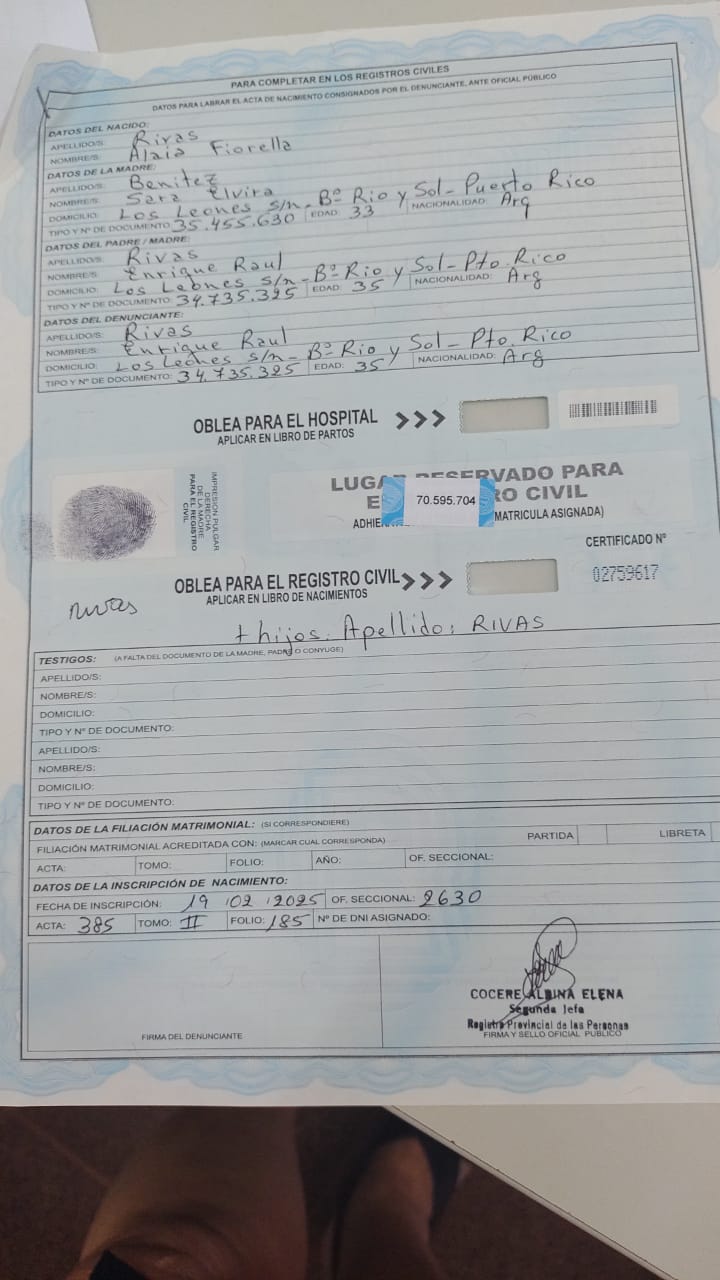 PARA COMPLETAR EN LOS REGISTROS CIVILES
DATOS PARA LABRAR EL ACTA DE NACIMIENTO CONSIGNADOS POR EL DENUNCIANTE, ANTE OFICIAL PÚBLICO
DATOS DEL NACIDO:
APELLIDO/S: Rivas
NOMBRE/S: Alaia Fiorella
DATOS DE LA MADRE:
APELLIDO/S: Benitez
NOMBRE/S: Sara Elvira
DOMICILIO: Los Leones s/n- Bº Rio y Sol- Puerto Rico
TIPO Y Nº DE DOCUMENTO: 35.455.630 EDAD: 33 NACIONALIDAD: Arg
DATOS DEL PADRE / MADRE:
APELLIDO/S: Rivas
NOMBRE/S: Enrique Raul
DOMICILIO: Los Leones s/n- Bº Rio y Sol- Pto. Rico
TIPO Y Nº DE DOCUMENTO: 34.735.325 EDAD: 35 NACIONALIDAD: Arg
DATOS DEL DENUNCIANTE:
APELLIDO/S: Rivas
NOMBRE/S: Enrique Raul
DOMICILIO: Los Leones s/n- Bº Rio y Sol- Pto. Rico
TIPO Y Nº DE DOCUMENTO: 34.735.325 EDAD: 35 NACIONALIDAD: Arg
OBLEA PARA EL HOSPITAL >>>
APLICAR EN LIBRO DE PARTOS
IMPRESION PULGAR
DERECHA
DE LA MADRE
PARA EL REGISTRO
CIVIL
LUGAR RESERVADO PARA
E 70.595.704 RO CIVIL
ADHIE MATRICULA ASIGNADA)
CERTIFICADO Nº
02759617
OBLEA PARA EL REGISTRO CIVIL >>>
APLICAR EN LIBRO DE NACIMIENTOS
rivas
+ hijos. Apellido: RIVAS
TESTIGOS: (A FALTA DEL DOCUMENTO DE LA MADRE, PADRE O CONYUGE)
APELLIDO/S:
NOMBRE/S:
DOMICILIO:
TIPO Y Nº DE DOCUMENTO:
APELLIDO/S:
NOMBRE/S:
DOMICILIO:
TIPO Y Nº DE DOCUMENTO:
DATOS DE LA FILIACIÓN MATRIMONIAL: (SI CORRESPONDIERE)
FILIACIÓN MATRIMONIAL ACREDITADA CON: (MARCAR CUAL CORRESPONDA) PARTIDA LIBRETA
ACTA: TOMO: FOLIO: AÑO: OF. SECCIONAL:
DATOS DE LA INSCRIPCIÓN DE NACIMIENTO:
FECHA DE INSCRIPCIÓN: 19 / 02 / 2025 OF. SECCIONAL: 2630
ACTA: 385 TOMO: II FOLIO: 185 Nº DE DNI ASIGNADO:
COCERE ALBINA ELENA
Segunda Jefa
Registro Provincial de las Personas
FIRMA DEL DENUNCIANTE
FIRMA Y SELLO OFICIAL PÚBLICO